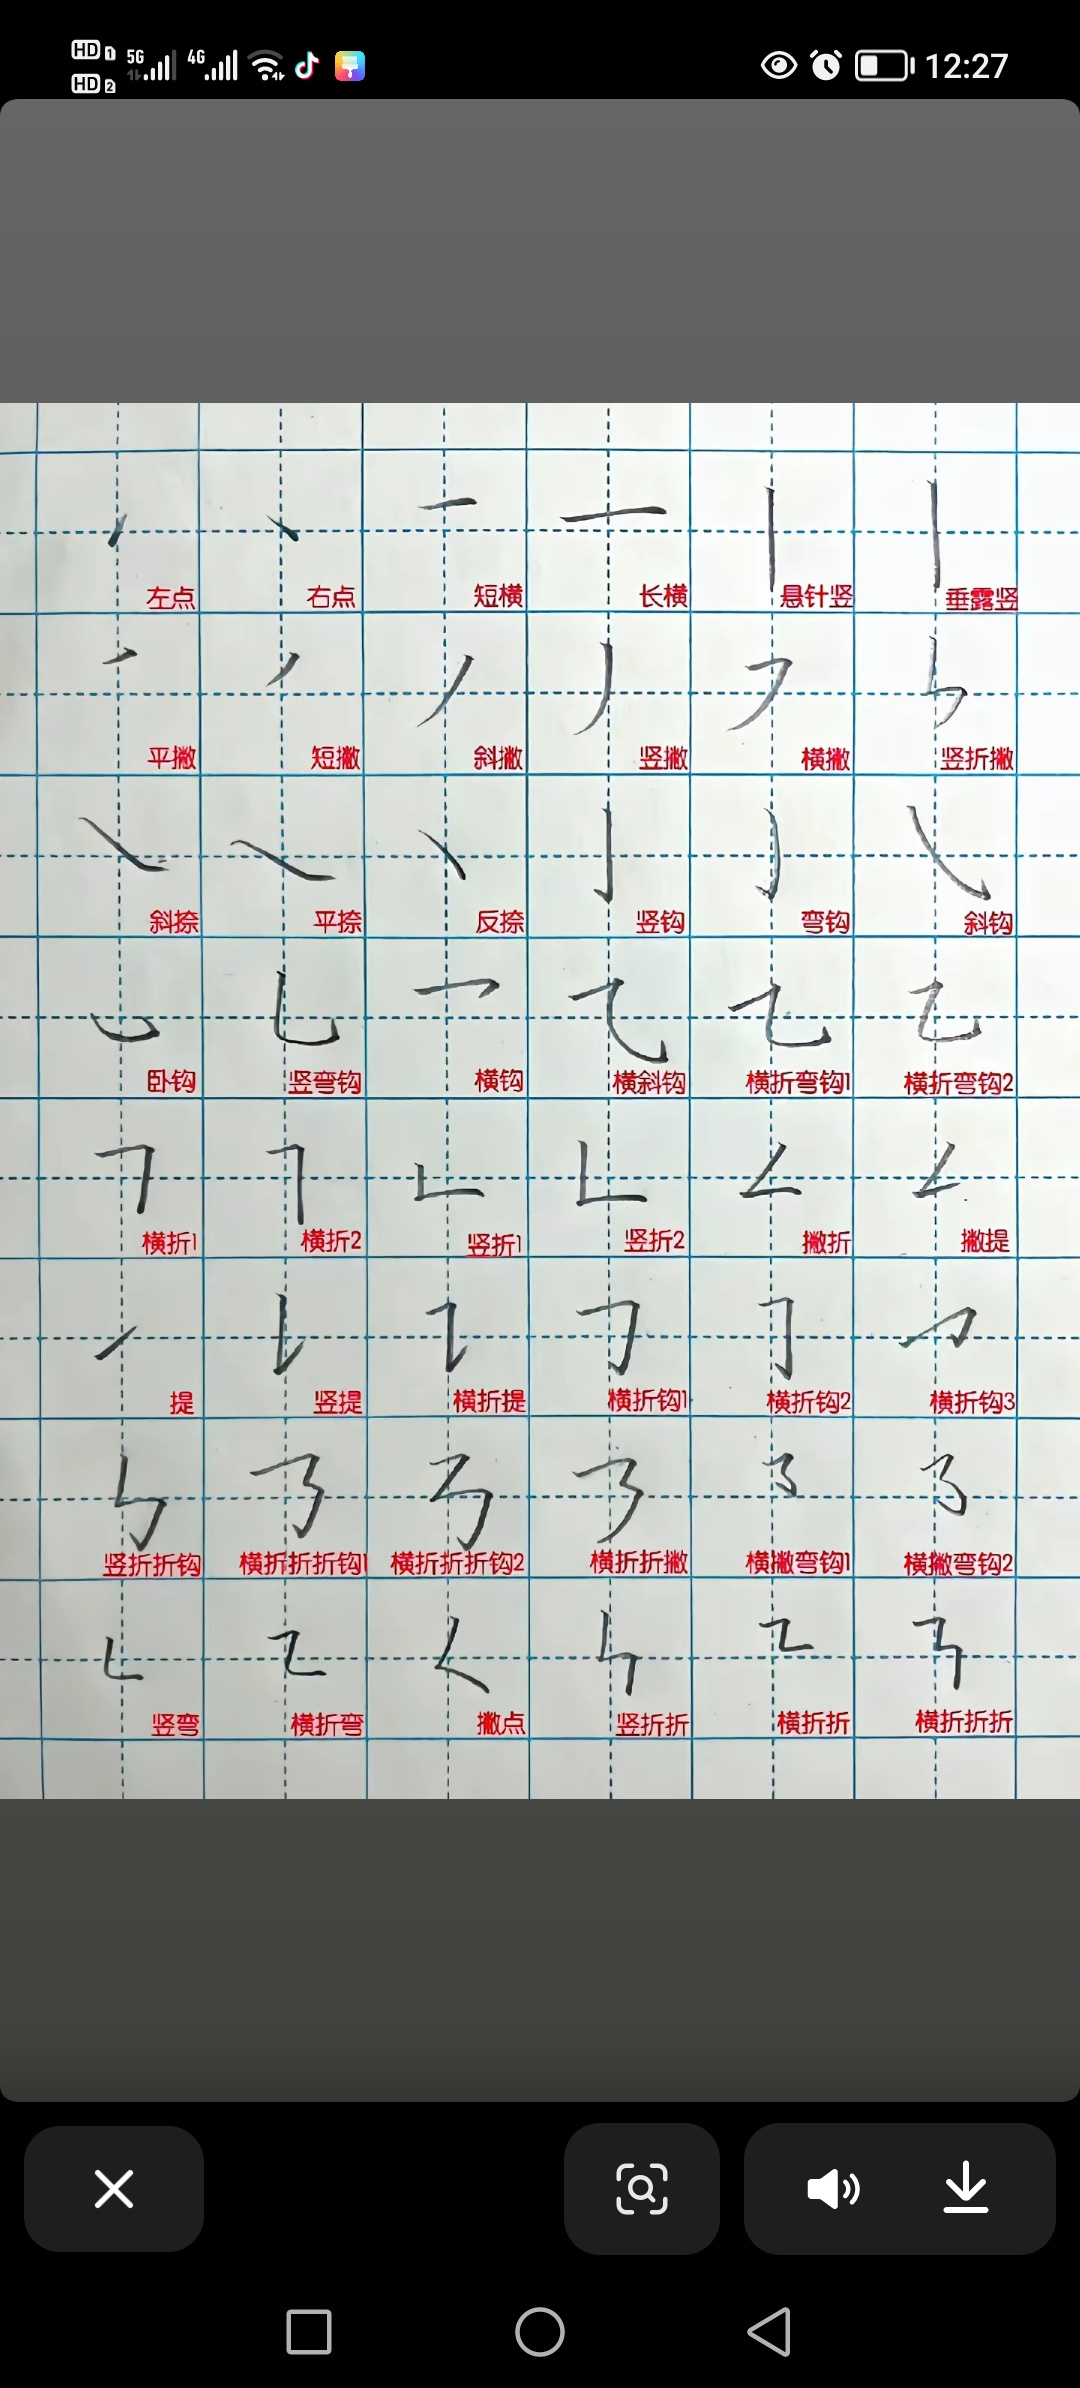 HD 1 5G 4G 12:27
HD 2
左点 右点 短横 长横 悬针竖 垂露竖
平撇 短撇 斜撇 竖撇 横撇 竖折撇
斜捺 平捺 反捺 竖钩 弯钩 斜钩
卧钩 竖弯钩 横钩 横斜钩 横折弯钩1 横折弯钩2
横折1 横折2 竖折1 竖折2 撇折 撇提
提 竖提 横折提 横折钩1 横折钩2 横折钩3
竖折折钩 横折折折钩1 横折折折钩2 横折折撇 横撇弯钩1 横撇弯钩2
竖弯 横折弯 撇点 竖折折 横折折 横折折折